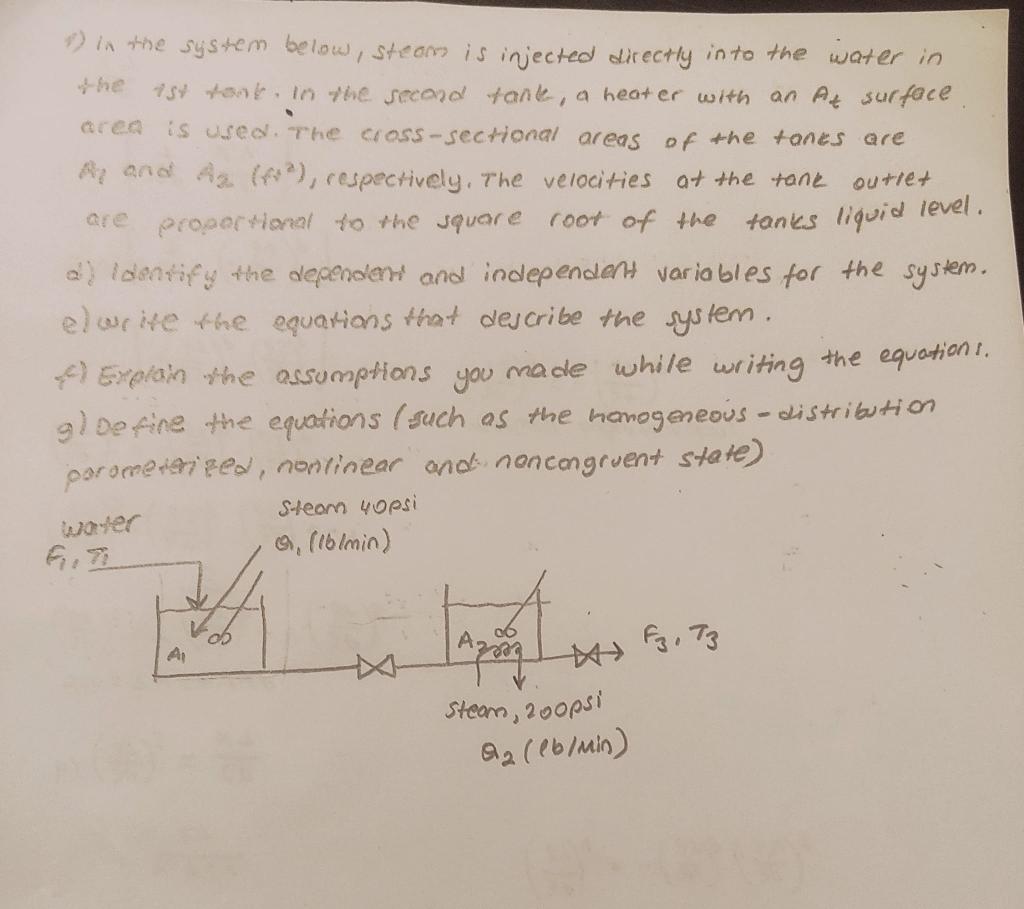 1) In the system below, steam is injected directly into the water in
the 1st tank. In the second tank, a heater with an At surface
area is used. The cross-sectional areas of the tanks are
A1 and A2 (ft²), respectively. The velocities at the tank outlet
are proportional to the square root of the tanks liquid level.
d) Identify the dependent and independent variables for the system.
e) write the equations that describe the system.
f) Explain the assumptions you made while writing the equations.
g) Define the equations (such as the homogeneous-distribution
parameterized, nonlinear and noncongruent state)
Steam 40psi
water
Q1 (lb/min)
F1, T1
A1
A2
F3, T3
Steam, 200psi
Q2 (lb/min)